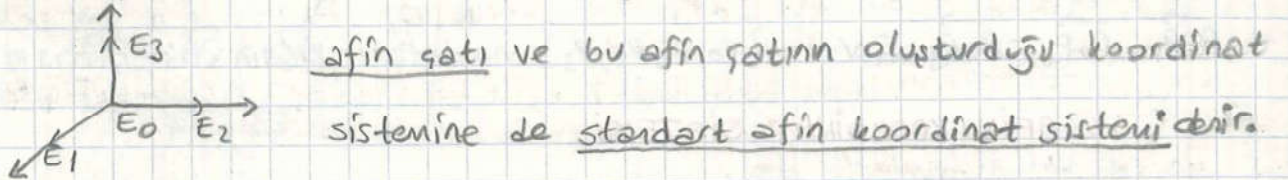 E3
afin çatı ve bu afin çatının oluşturduğu koordinat
E0 E2
sistemine de standart afin koordinat sistemi denir.
E1